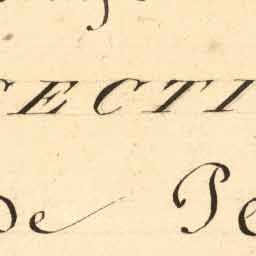 ECTI
de Pe